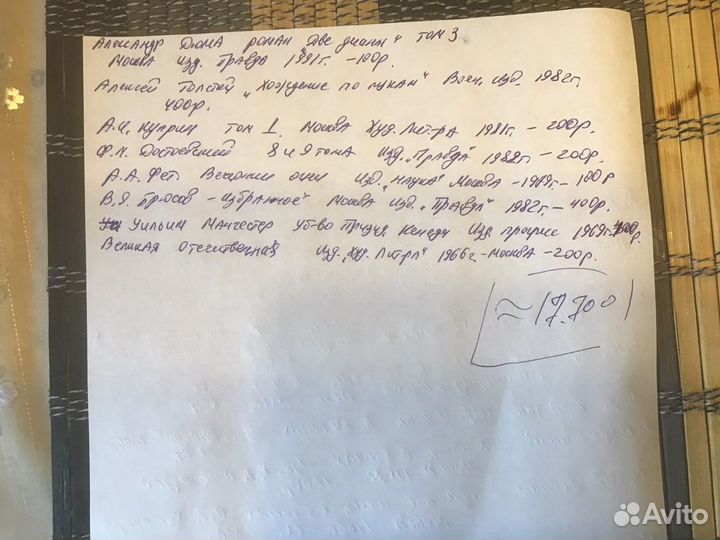 Александр Дюма роман "Две Дианы" том 3
Москва изд. Правда 1991г. -100р.
Алексей Толстой "Хождение по мукам" Воен. изд. 1982г.
400р.
А.И. Куприн том 1. Москва Худ. Лит-ра 1981г. - 200р.
Ф.М. Достоевский 8 и 9 тома изд. "Правда" 1982г. - 200р.
А.А. Фет Вечерние огни изд. "Наука" Москва - 1979г. - 100р
В.Я. Брюсов - избранное Москва изд. "Правда" 1982г. - 400р.
Уильям Манчестер уб-во През. Кенеди Изд. прогресс 1969г.
Великая Отечественная изд. "Худ. Лит-ра" 1966г. - Москва - 200р.
≈17.700
Avito